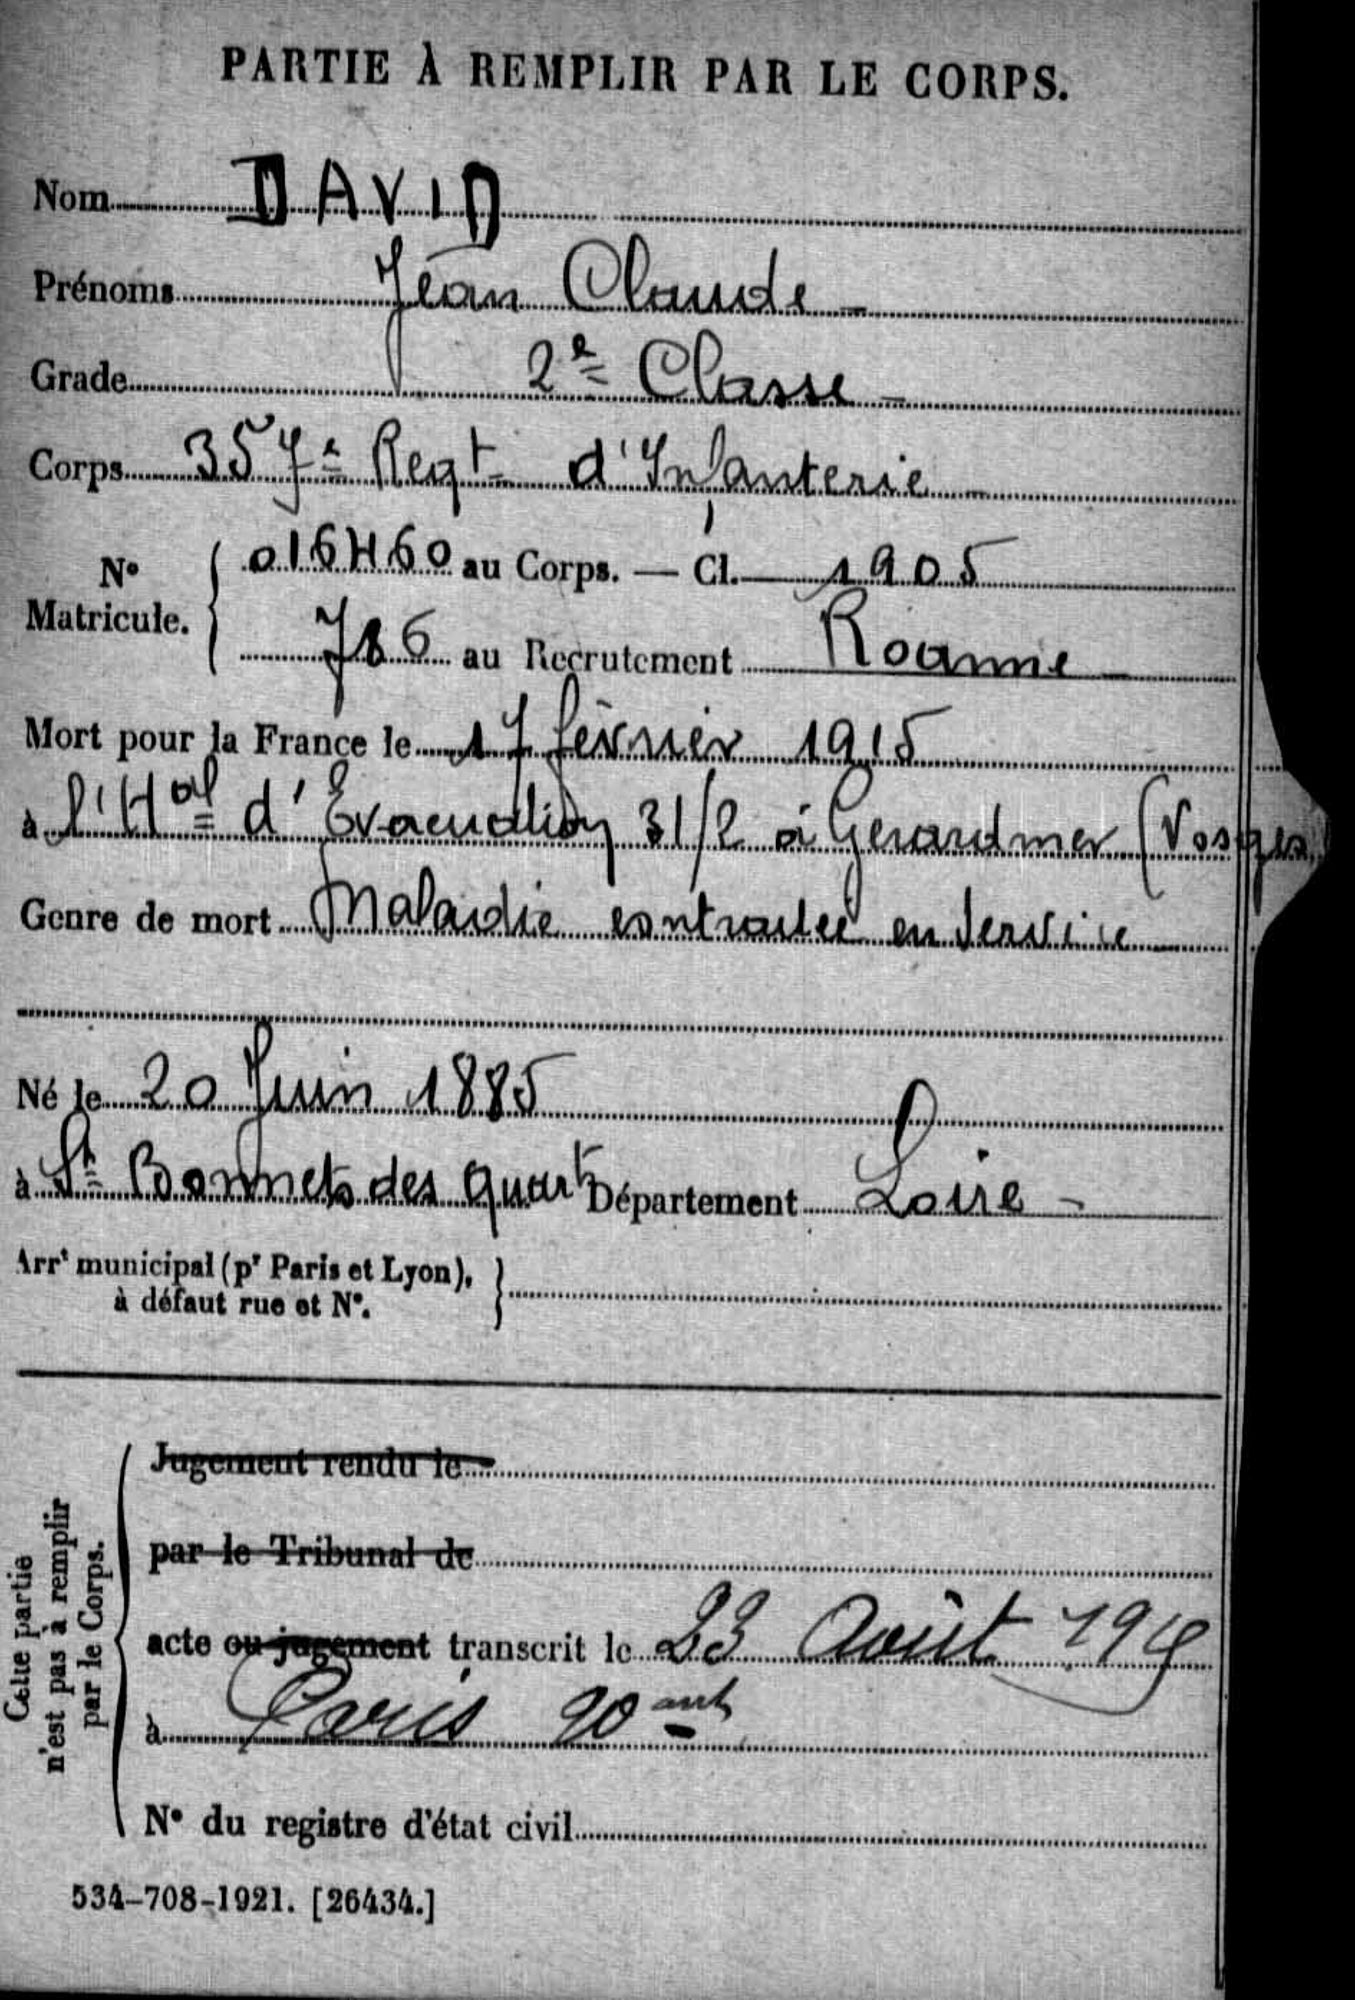 PARTIE À REMPLIR PAR LE CORPS.
Nom DAVID
Prénoms Jean Claude -
Grade 2e Classe -
Corps 357e Regt d'Infanterie -
No Matricule. { 016460 au Corps. — Cl. 1905
786 au Recrutement Roanne -
Mort pour la France le 17 février 1915
à l'Hal d'Evacuation 31/2 à Gerardmer (Vosges)
Genre de mort Maladie contractée en Service
Né le 20 Juin 1885
à St Bonnet des Quart Département Loire -
Arrt municipal (pr Paris et Lyon), à défaut rue et No. }
Cette partie n'est pas à remplir par le Corps.
Jugement rendu le
par le Tribunal de
acte ou jugement transcrit le 23 Août
à Paris 20 art
No du registre d'état civil
534-708-1921. [26434.]